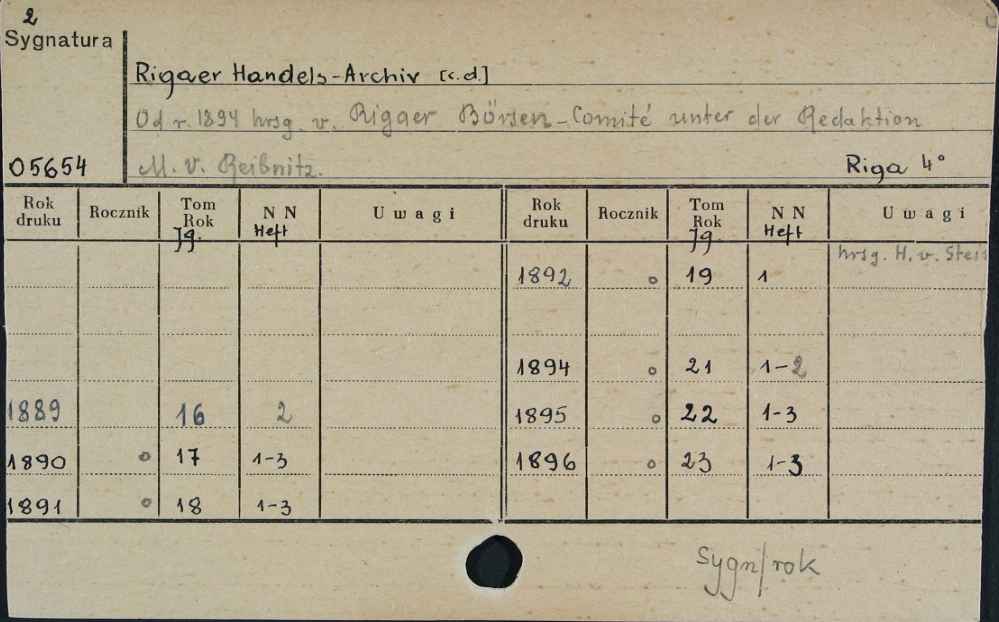 2
Sygnatura
Rigaer Handels-Archiv [c.d.]
Od r. 1894 hrsg. v. Rigaer Börsen-Comité unter der Redaktion
05654 M. v. Reibnitz. Riga 4°
Rok druku Rocznik Tom Rok Jg. NN Heft Uwagi Rok druku Rocznik Tom Rok Jg. NN Heft Uwagi
hrsg. H. v.
1892 o 19 1
1894 o 21 1-2
1889 16 2 1895 o 22 1-3
1890 o 17 1-3 1896 o 23 1-3
1891 o 18 1-3
Sygn/rok